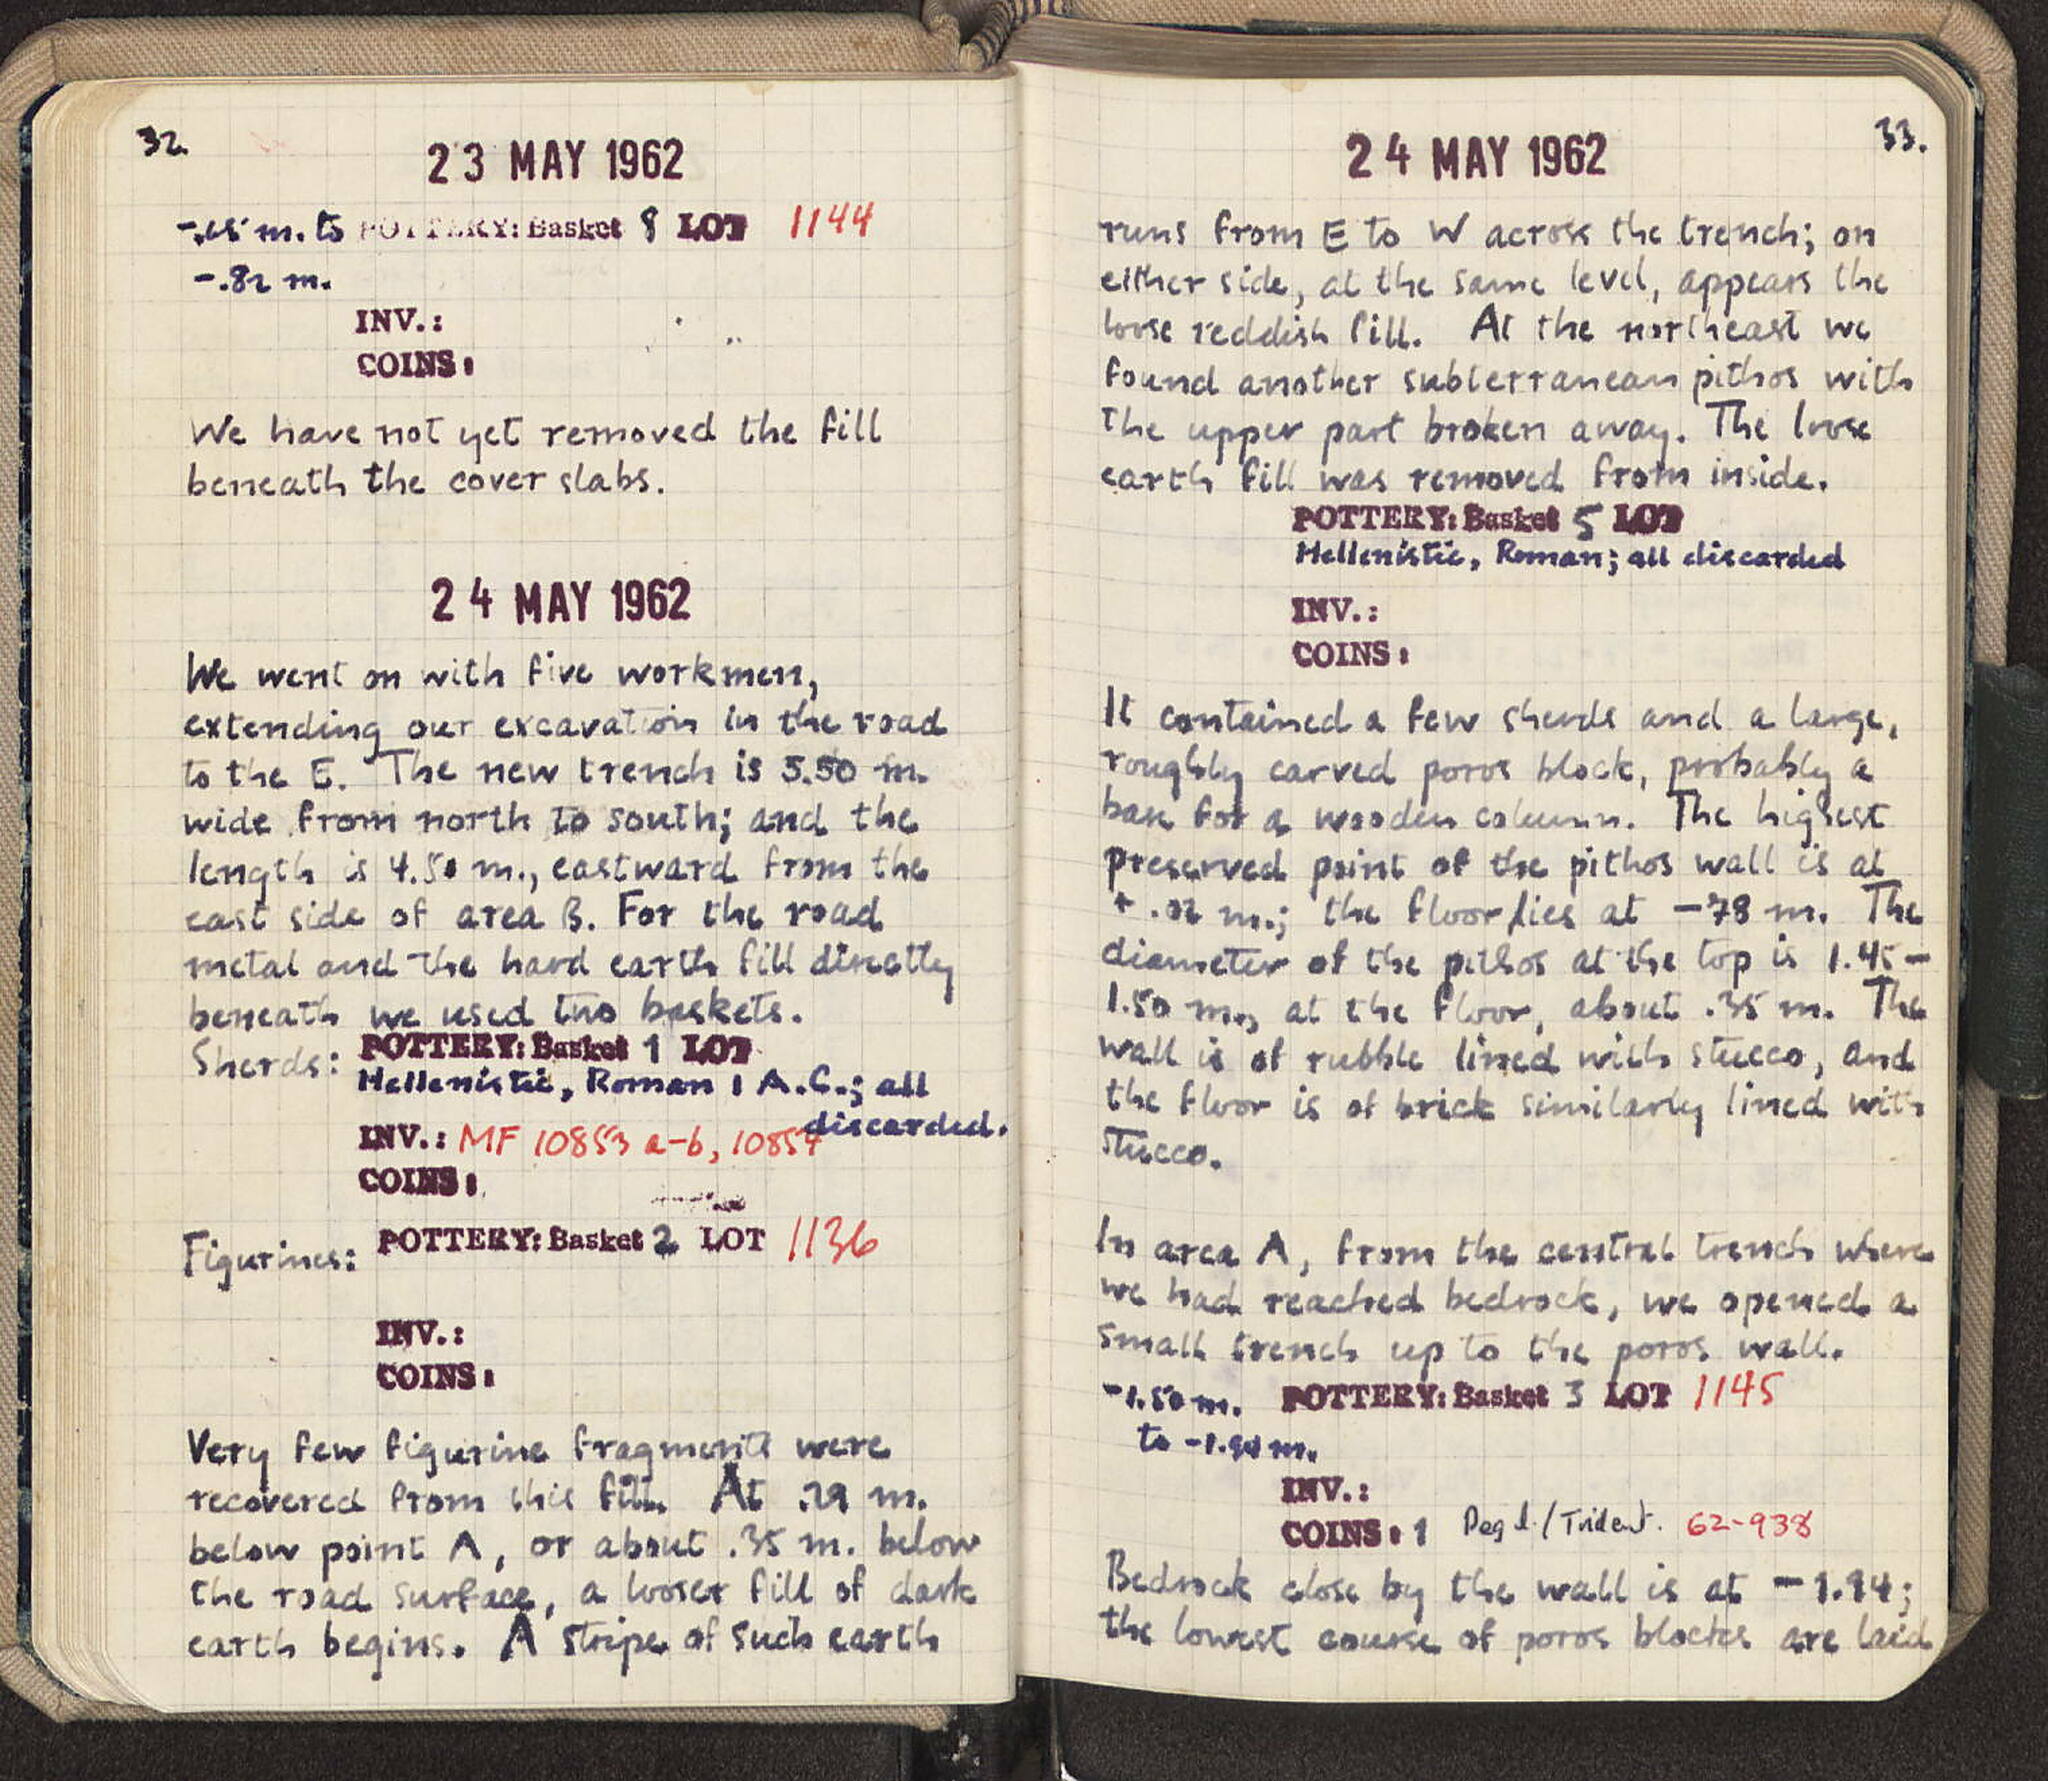 32.
23 MAY 1962
m. to POTTERY: Basket 8 LOT 1144
-.82 m.
INV.:
COINS:
We have not yet removed the fill
beneath the cover slabs.
24 MAY 1962
We went on with five workmen,
extending our excavation in the road
to the E. The new trench is 5.50 m.
wide from north to south; and the
length is 4.50 m., eastward from the
east side of area B. For the road
metal and the hard earth fill directly
beneath we used two baskets.
Sherds: POTTERY: Basket 1 LOT
Hellenistic, Roman 1 A.C.; all
discarded.
INV.: MF 10853 a-b, 10854
COINS:
Figurines: POTTERY: Basket 2 LOT 1136
INV.:
COINS:
Very few figurine fragments were
recovered from this fill. At .29 m.
below point A, or about .35 m. below
the road surface, a looser fill of dark
earth begins. A stripe of such earth
33.
24 MAY 1962
runs from E to W across the trench; on
either side, at the same level, appears the
loose reddish fill. At the northeast we
found another subterranean pithos with
the upper part broken away. The loose
earth fill was removed from inside.
POTTERY: Basket 5 LOT
Hellenistic, Roman; all discarded
INV.:
COINS:
It contained a few sherds and a large,
roughly carved poros block, probably a
base for a wooden column. The highest
preserved point of the pithos wall is at
+ .02 m.; the floor lies at -78 m. The
diameter of the pithos at the top is 1.45-
1.50 m., at the floor, about .35 m. The
wall is of rubble lined with stucco, and
the floor is of brick similarly lined with
stucco.
In area A, from the central trench where
we had reached bedrock, we opened a
small trench up to the poros wall.
-1.50 m. POTTERY: Basket 3 LOT 1145
to -1.94 m.
INV.:
COINS: 1 Peg l./Trident. 62-938
Bedrock close by the wall is at -1.94;
the lowest course of poros blocks are laid